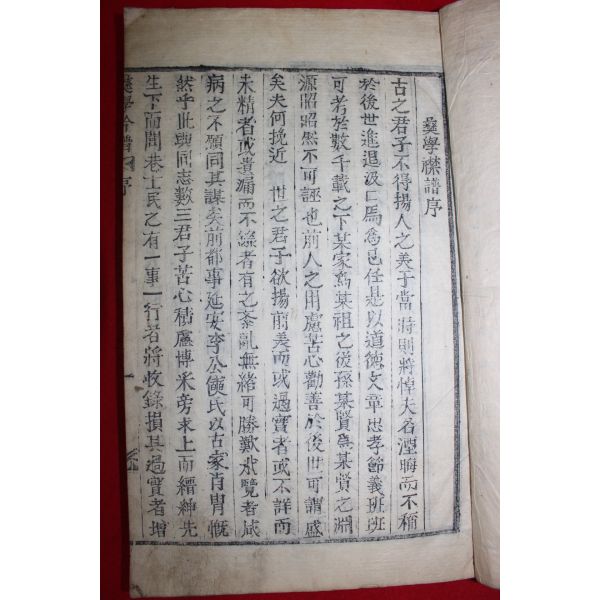 彝學襍譜序
古之君子不得揚人之美于當時則將悼夫名湮晦而不稱
於後世進退汲仁焉爲已任是以道德文章忠孝節義班班
可考於數千載之下某家爲某祖之後孫某賢爲某賢之淵
源昭昭然不可誣也前人之用慮苦心勸善於後世可謂盛
矣夫何挽近世之君子欲揚前美而或過實者或不詳而
未精者或遺漏而不錄者有之紊亂無緖可勝歎哉覽者咸
病之不願同其謀矣前都事延安李公 氏以古家肖胄慨
然乎此與同志數三君子苦心積慮博采旁求上而縉紳先
生下而閭巷士民之有一事一行者將收錄損其過實者增
彝學 譜 序